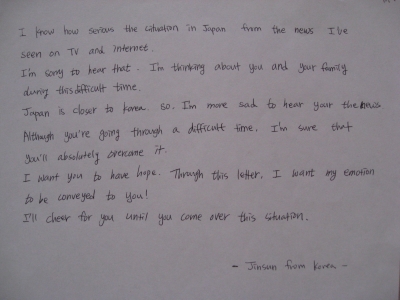 I know how serious the situation in Japan from the news I've
seen on TV and internet.
I'm sorry to hear that. I'm thinking about you and your family
during this difficult time.
Japan is closer to Korea. so. I'm more sad to hear your the news
Although you're going through a difficult time, I'm sure that
you'll absolutely overcome it.
I want you to have hope. Through this letter, I want my emotion
to be conveyed to you!
I'll cheer for you until you come over this situation.
- Jinsun from Korea -